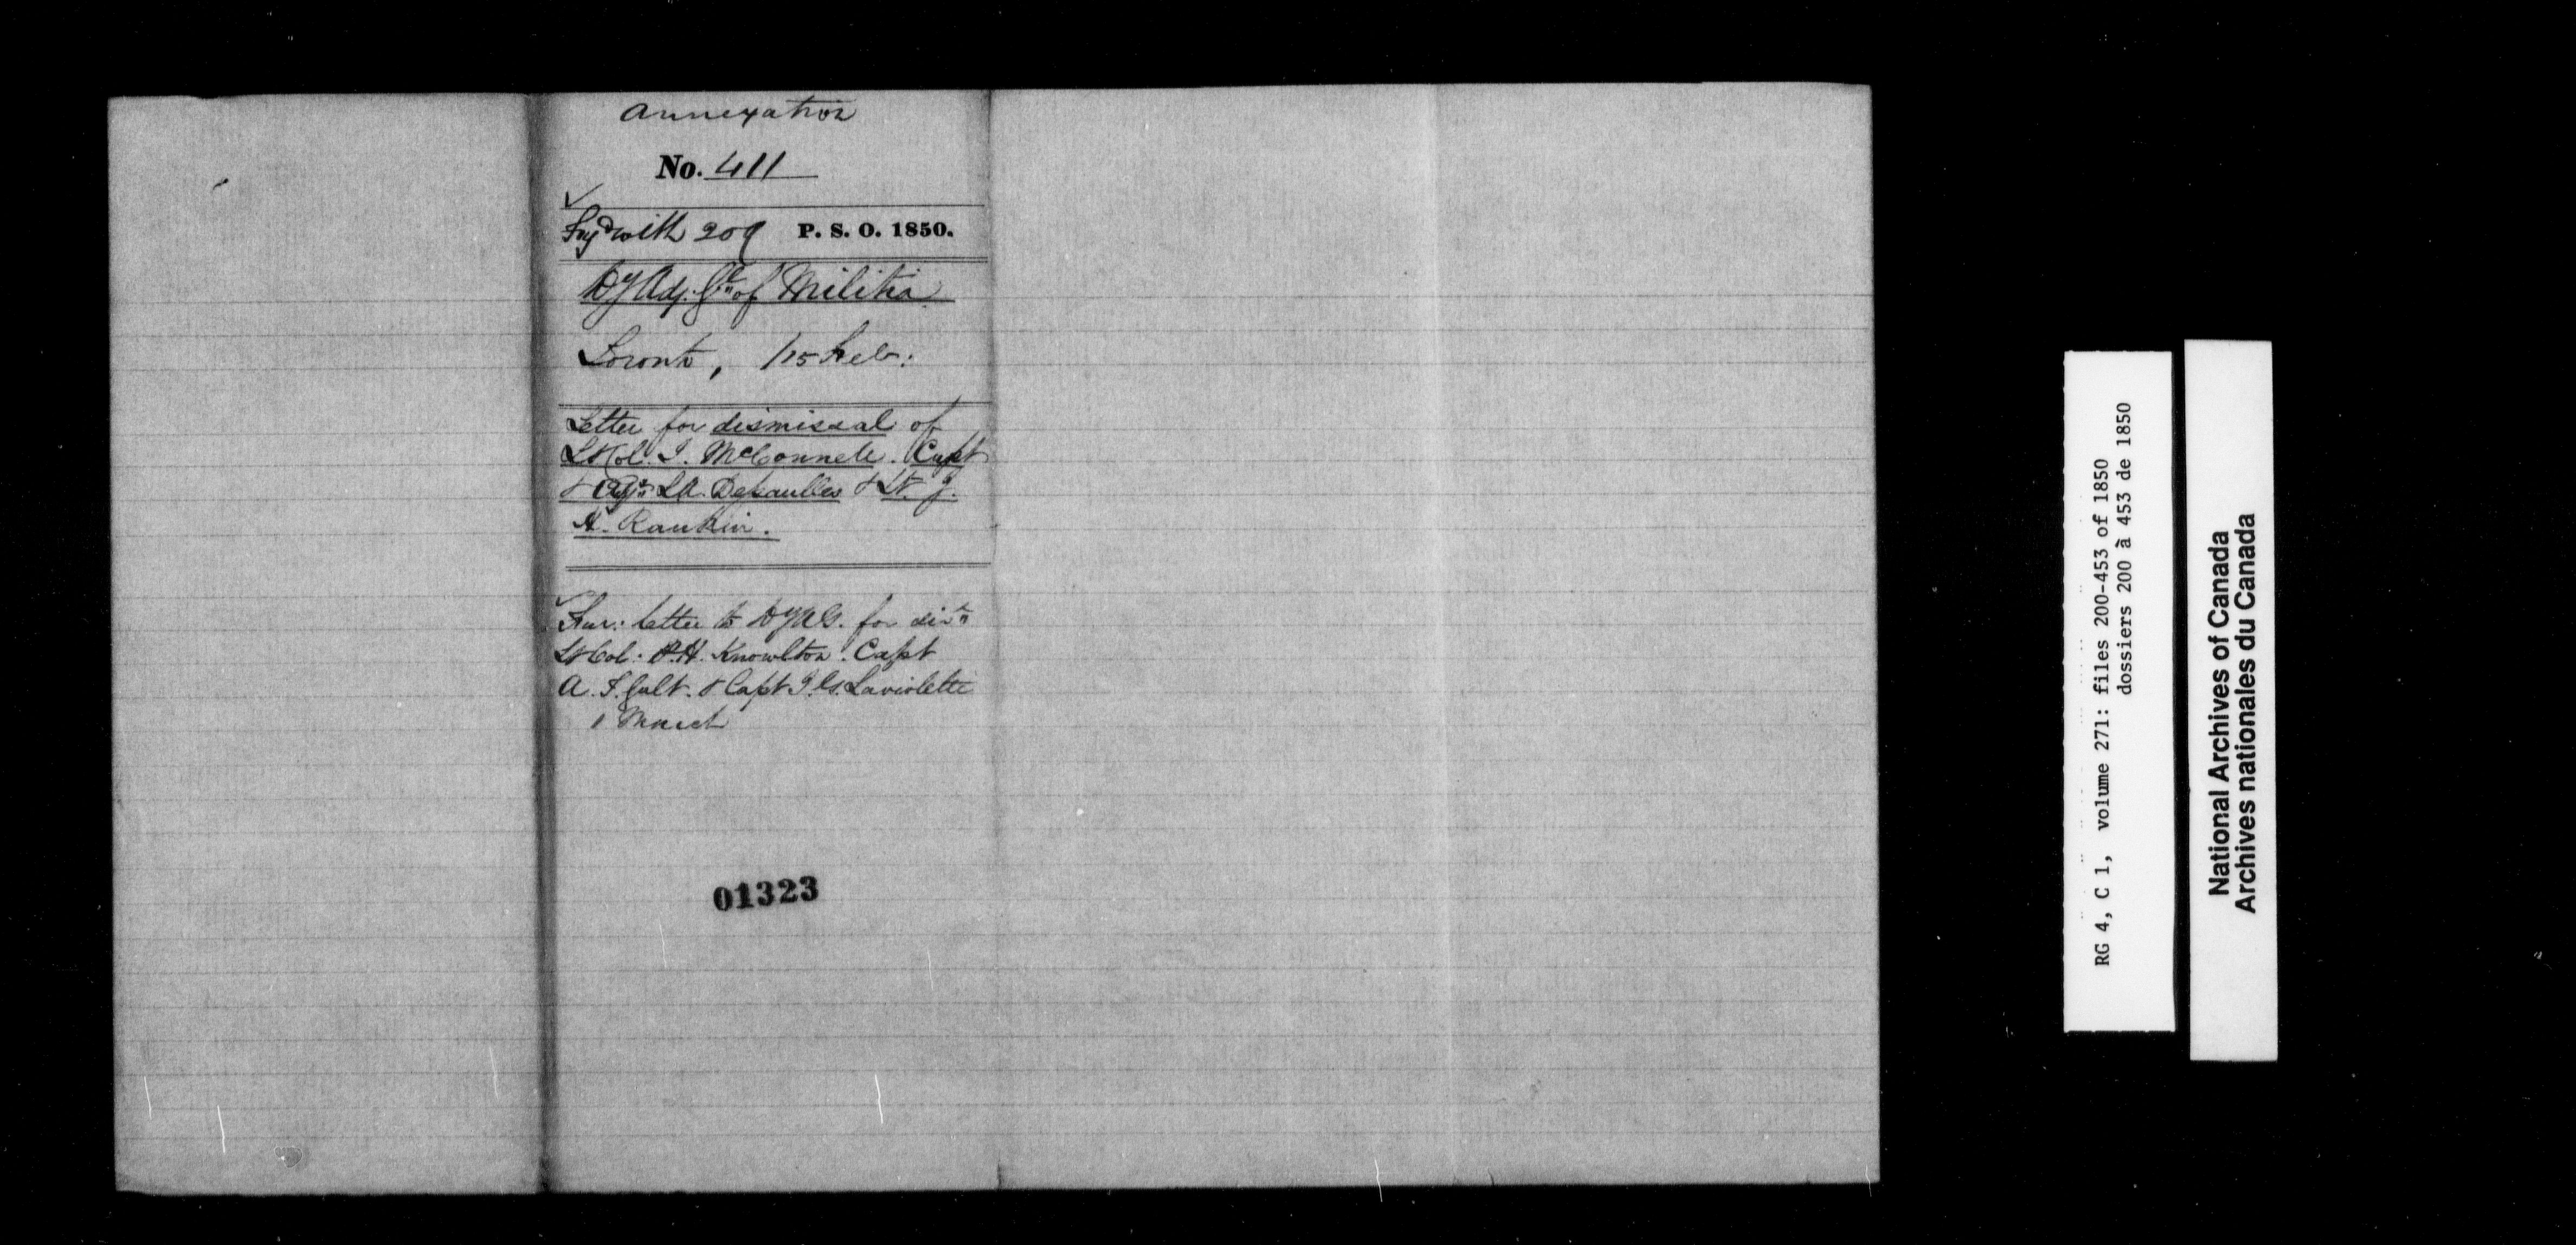 Annexation
No. 411
Fyd with 209 P. S. O. 1850.
Dy Adj. Gl. of Militia
Toronto, 15 Feb:
Letter for dismissal of
Lt Col. I. McConnell. Capt
& L A. Dessaulles & Lt. J.
A. Rankin.
Fur: letter to DyAG. for disn
Lt Col. P.H. Knowlton. Capt
A. T. Galt. & Capt I. G. Laviolette
1 March
01323
RG 4, C 1, volume 271: files 200-453 of 1850
dossiers 200 à 453 de 1850
National Archives of Canada
Archives nationales du Canada